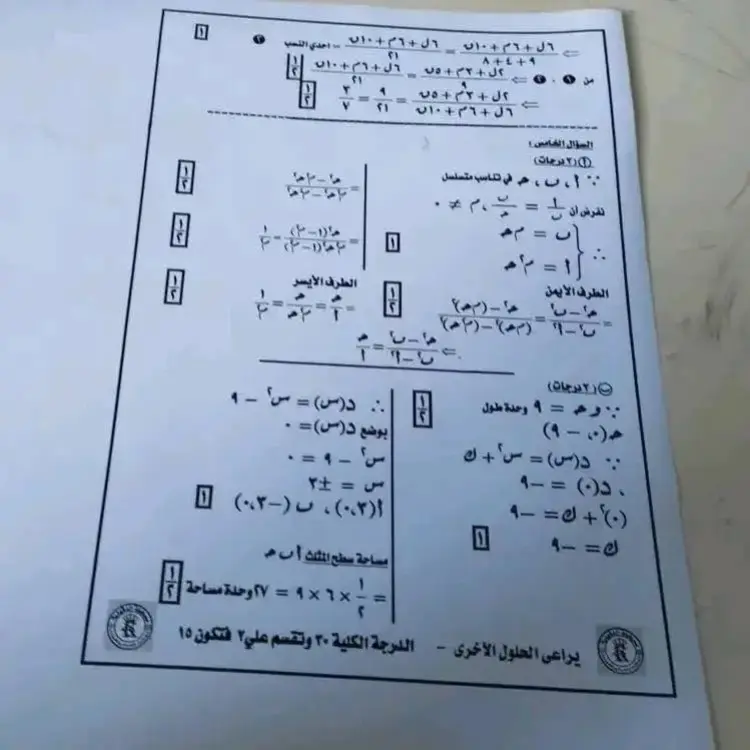 ⇐ (٦ل + ٦م + ١٠ن) / (٩ + ٤ + ٨) = (٦ل + ٦م + ١٠ن) / ٢١ = احدي النسب ٢ [١]
من ١ ، ٢ ⇐ (٢ل + ٣م + ٥ن) / ٩ = (٦ل + ٦م + ١٠ن) / ٢١ [١/٢]
⇐ (٢ل + ٣م + ٥ن) / (٦ل + ٦م + ١٠ن) = ٩/٢١ = ٣/٧ [١/٢]
السؤال الخامس:
أ (٣ درجات)
∵ أ ، ب ، هـ في تناسب متسلسل
نفرض أن أ/ب = ب/هـ = م ، م ≠ ٠
∴ { ب = م هـ
أ = م٢ هـ [١]
الطرف الأيمن
= (هـ٢ – ب٢) / (ب٢ – أ٢) = (هـ٢ – (م هـ)٢) / ((م هـ)٢ – (م٢ هـ)٢) [١/٢]
= (هـ٢ – م٢ هـ٢) / (م٢ هـ٢ – م٤ هـ٢) [١/٢]
= هـ٢(١ – م٢) / م٢ هـ٢(١ – م٢) = ١/م٢ [١/٢]
الطرف الأيسر
= هـ/أ = هـ/م٢ هـ = ١/م٢ [١/٢]
⇐ (هـ٢ – ب٢) / (ب٢ – أ٢) = هـ/أ
ب (٣ درجات)
∵ و هـ = ٩ وحدة طول
هـ(٠ ، –٩) [١/٢]
∵ د(س) = س٢ + ك
، د(٠) = –٩
(٠)٢ + ك = –٩
ك = –٩ [١]
∴ د(س) = س٢ – ٩
بوضع د(س) = ٠
س٢ – ٩ = ٠
س = ±٣
أ(٣ ، ٠) ، ب (–٣ ، ٠) [١]
مساحة سطح المثلث أ ب هـ
= ١/٢ × ٦ × ٩ = ٢٧ وحدة مساحة [١/٢]
يراعى الحلول الأخرى – الدرجة الكلية ٣٠ وتقسم علي ٢ فتكون ١٥